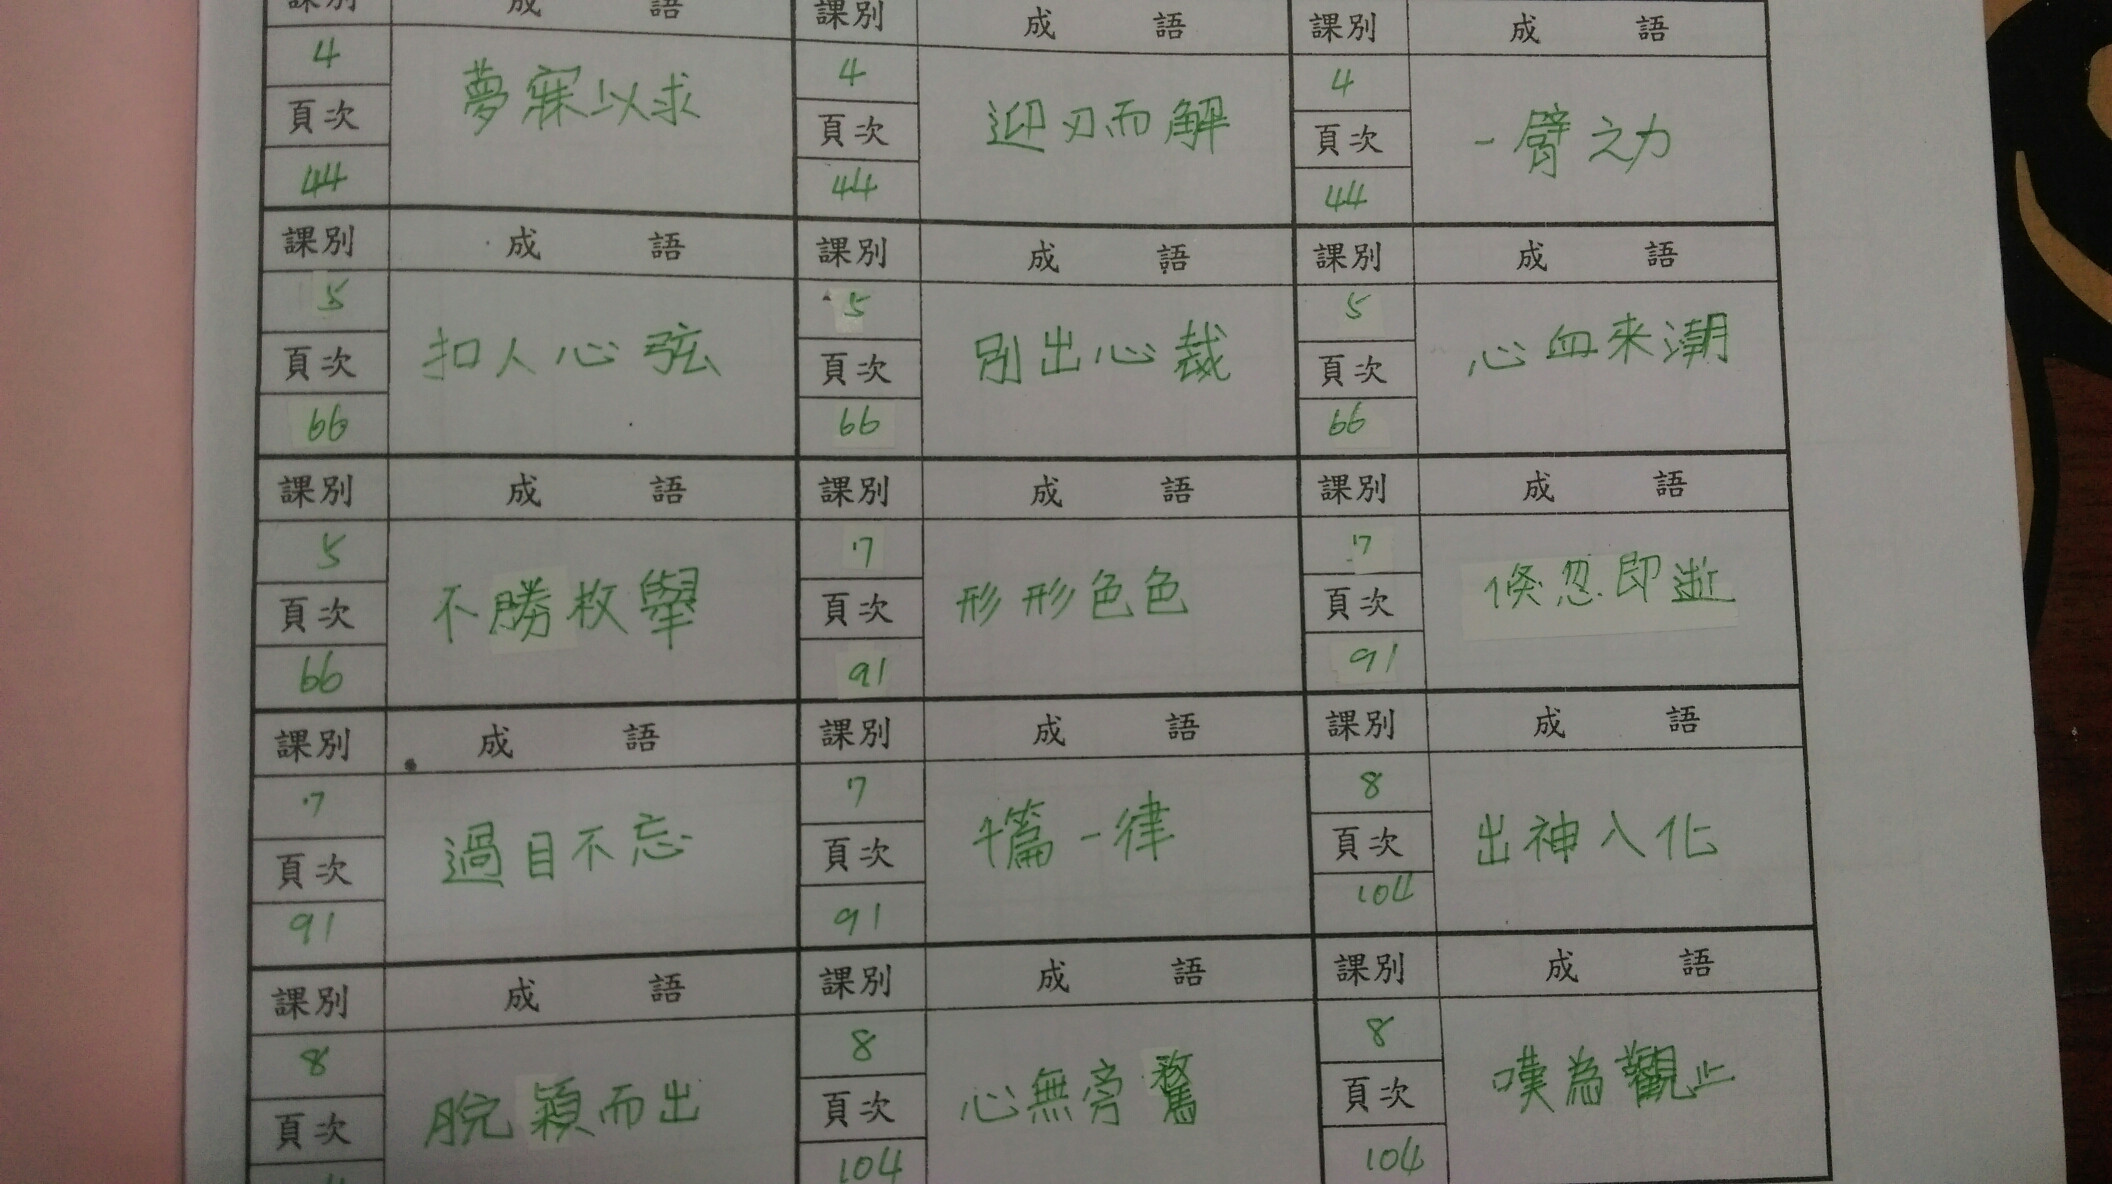 課別 成語 課別 成語 課別 成語
4 夢寐以求 4 迎刃而解 4 一臂之力
頁次 頁次 頁次
44 44 44
課別 成語 課別 成語 課別 成語
5 扣人心弦 5 別出心裁 5 心血來潮
頁次 頁次 頁次
66 66 66
課別 成語 課別 成語 課別 成語
5 不勝枚舉 7 形形色色 7 倏忽即逝
頁次 頁次 頁次
66 91 91
課別 成語 課別 成語 課別 成語
7 過目不忘 7 千篇一律 8 出神入化
頁次 頁次 頁次
91 91 104
課別 成語 課別 成語 課別 成語
8 脫穎而出 8 心無旁騖 8 嘆為觀止
頁次 頁次 頁次
104 104